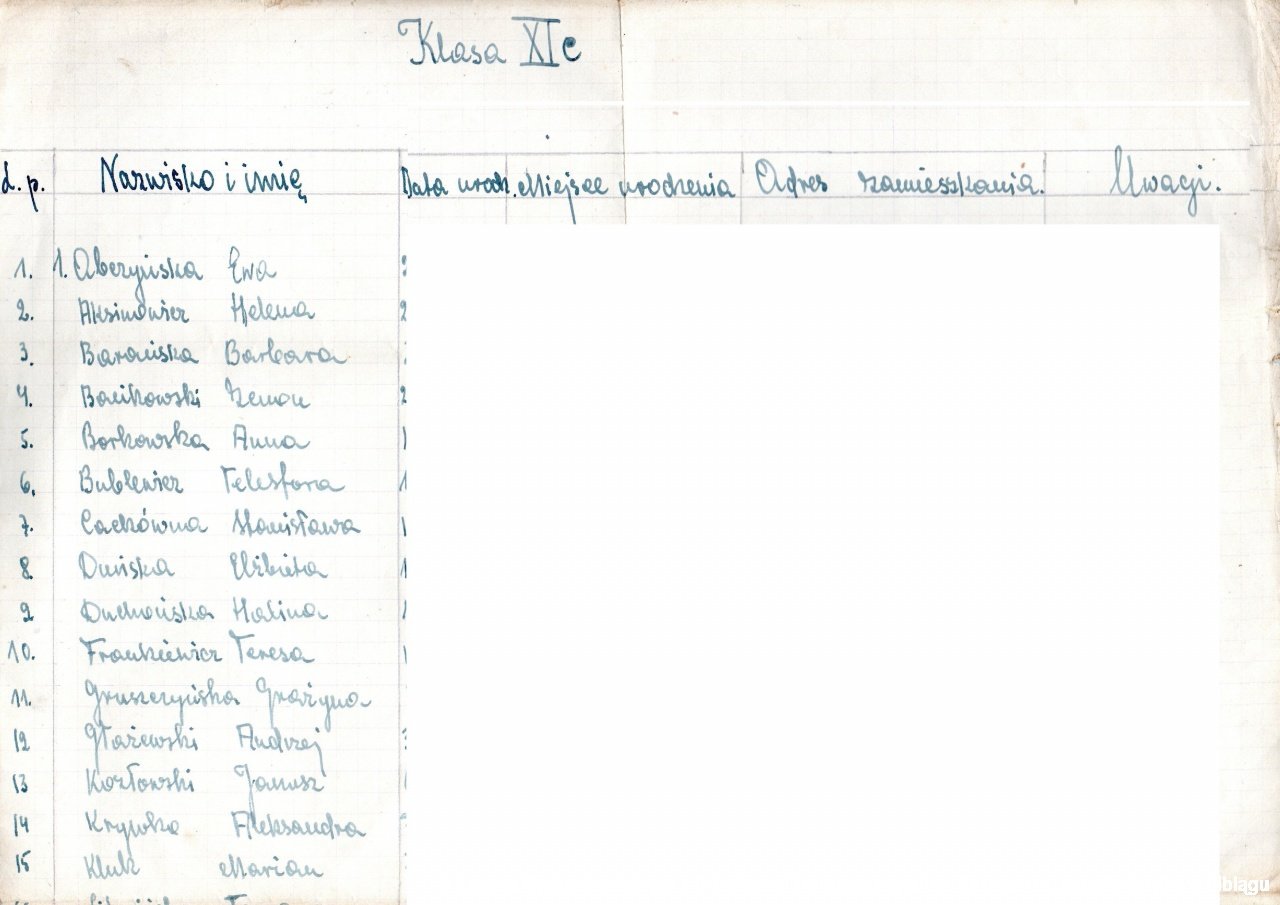 Klasa XIc
L.p. Nazwisko i imię Data urodz. Miejsce urodzenia Adres zamieszkania. Uwagi.
1. 1. Abczyńska Ewa
2. Aksinowicz Helena
3. Barańska Barbara
4. Bańkowski Zenon
5. Borkowska Anna
6. Bublewicz Telesfora
7. Cackówna Stanisława
8. Duńska Elżbieta
9 Duchońska Halina
10. Frankiewicz Teresa
11. Gruszczyńska Grażyna
12 Głażewski Andrzej
13 Kozłowski Janusz
14 Krywko Aleksandra
15 Kluk Marian